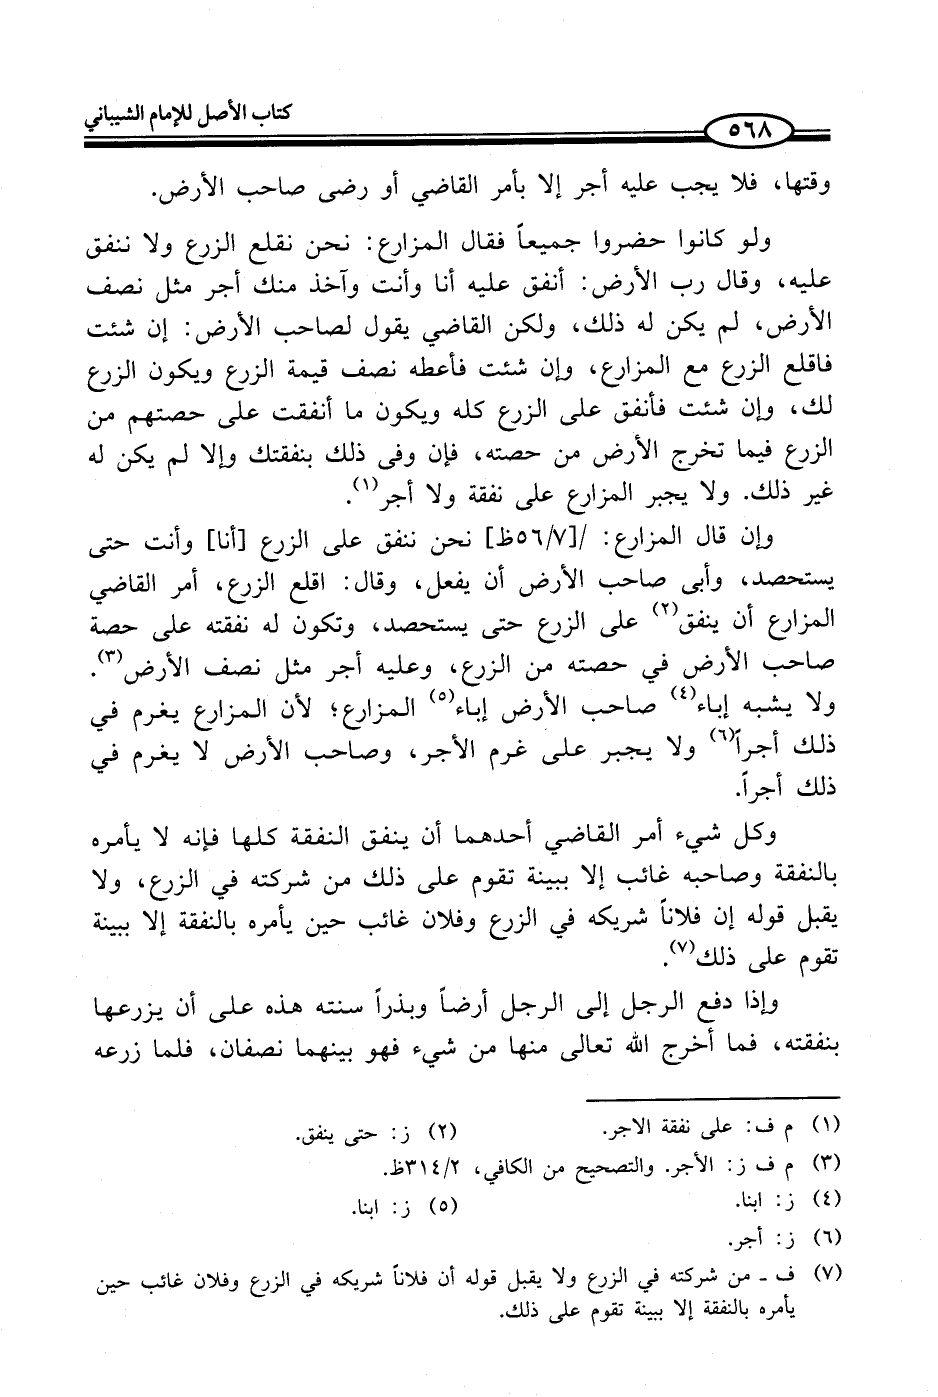 كتاب الأصل للإمام الشيباني
٥٦٨
وقتها، فلا يجب عليه أجر إلا بأمر القاضي أو رضى صاحب الأرض.
ولو كانوا حضروا جميعاً فقال المزارع: نحن نقلع الزرع ولا ننفق
عليه، وقال رب الأرض: أنفق عليه أنا وأنت وآخذ منك أجر مثل نصف
الأرض، لم يكن له ذلك، ولكن القاضي يقول لصاحب الأرض: إن شئت
فاقلع الزرع مع المزارع، وإن شئت فأعطه نصف قيمة الزرع ويكون الزرع
لك، وإن شئت فأنفق على الزرع كله ويكون ما أنفقت على حصتهم من
الزرع فيما تخرج الأرض من حصته، فإن وفى ذلك بنفقتك وإلا لم يكن له
غير ذلك. ولا يجبر المزارع على نفقة ولا أجر(١).
وإن قال المزارع: /[٥٦/٧ظ] نحن ننفق على الزرع [أنا] وأنت حتى
يستحصد، وأبى صاحب الأرض أن يفعل، وقال: اقلع الزرع، أمر القاضي
المزارع أن ينفق(٢) على الزرع حتى يستحصد، وتكون له نفقته على حصة
صاحب الأرض في حصته من الزرع، وعليه أجر مثل نصف الأرض(٣).
ولا يشبه إباء(٤) صاحب الأرض إباء(٥) المزارع؛ لأن المزارع يغرم في
ذلك أجراً(٦) ولا يجبر على غرم الأجر، وصاحب الأرض لا يغرم في
ذلك أجراً.
وكل شيء أمر القاضي أحدهما أن ينفق النفقة كلها فإنه لا يأمره
بالنفقة وصاحبه غائب إلا ببينة تقوم على ذلك من شركته في الزرع، ولا
يقبل قوله إن فلاناً شريكه في الزرع وفلان غائب حين يأمره بالنفقة إلا ببينة
تقوم على ذلك(٧).
وإذا دفع الرجل إلى الرجل أرضاً وبذراً سنته هذه على أن يزرعها
بنفقته، فما أخرج الله تعالى منها من شيء فهو بينهما نصفان، فلما زرعه
(١) م ف: على نفقة الاجر. (٢) ز: حتى ينفق.
(٣) م ف ز: الأجر. والتصحيح من الكافي، ٣١٤/٢ظ.
(٤) ز: ابنا. (٥) ز: ابنا.
(٦) ز: أجر.
(٧) ف ـ من شركته في الزرع ولا يقبل قوله أن فلاناً شريكه في الزرع وفلان غائب حين
يأمره بالنفقة إلا ببينة تقوم على ذلك.